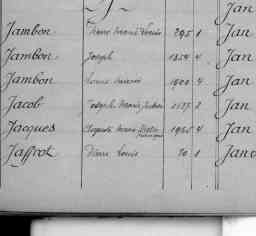 J
Jambon Pierre Marie Louis 295 1 Jan
Jambon Joseph 1354 4 Jan
Jambon Louis Marie 1900 4 Jan
Jacob Joseph Marie 1137 2 Jan
Jacques Auguste Marie 1965 4 Jan
Jaffrot Pierre Louis 70 1 Jan